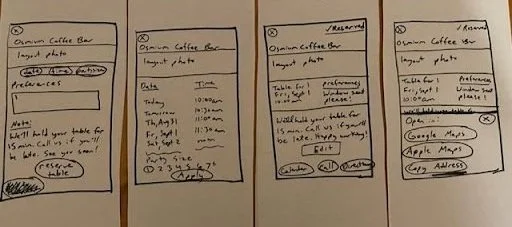 Osmium Coffee Bar
layout photo
date time partysize
Preferences
Note:
We'll hold your table for
15 min. Call us if you'll
be late. See you soon!
reserve
table
Osmium Coffee Bar
layout photo
Date Time
Today 10:00am
Tomorrow 10:30am
Th, Aug 31 11:00am
Fri, Sept 1 11:30am
Sat, Sept 2 noon
Party Size
1 2 3 4 5 6 7 8
Apply
✓Reserved
Osmium Coffee Bar
layout photo
Table for 1 Preferences
Fri, Sept 1 Window seat
10:00am please!
We'll hold your table for
15 min. Call us if you'll
be late. Happy working!
Edit
Calendar Call Directions
✓Reserved
Osmium Coffee Bar
layout photo
Table for 1 Preferences
Fri, Sept 1 Window seat
10:00am please!
We'll hold your table for
Open in:
Google Maps
Apple Maps
Copy Address